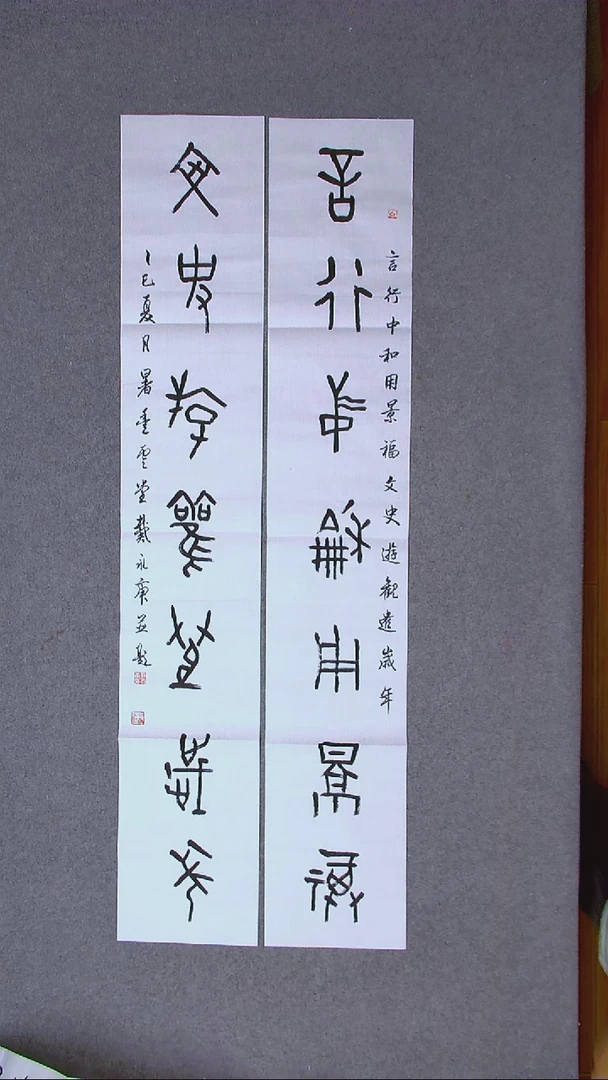 言行中和用景福
言行中和用景福文史遊觀遣歲年
文史遊觀遣歲年
乙巳夏月暑重雲堂戴永康並題